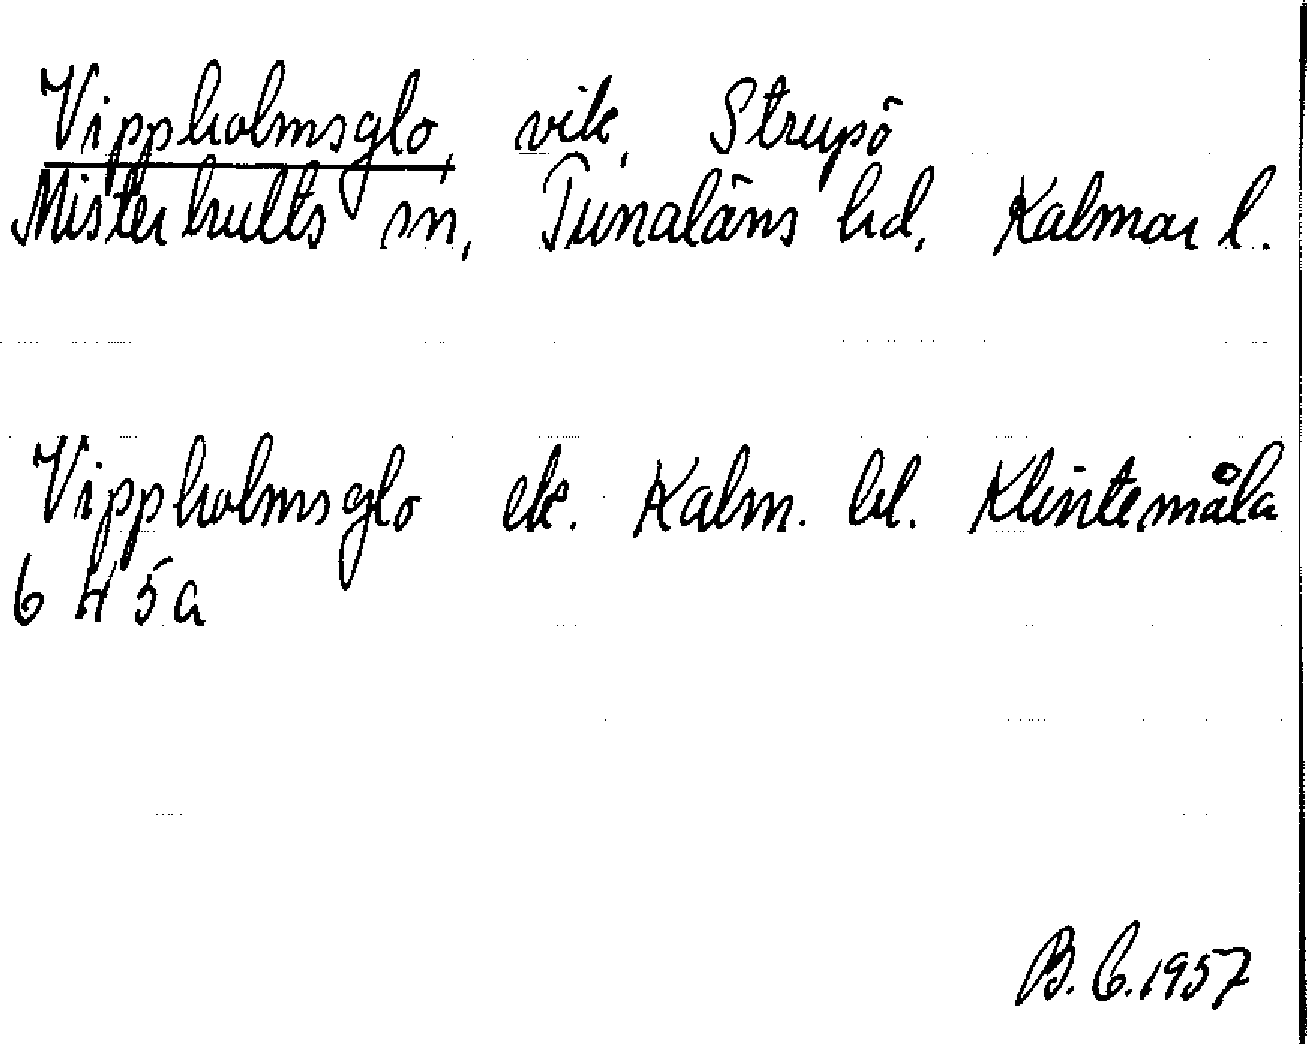 Vippholmsglo, vik, Strupö
Misterhults sn, Tunaläns hd, Kalmar l.
Vippholmsglo ek. Kalm. bl. Klintemåla
6 H 5a
B. C. 1957